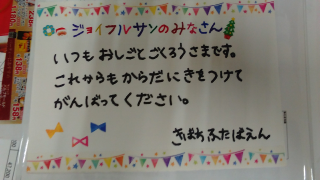 ジョイフルサンのみなさん
いつもおしごとごくろうさまです。
これからもからだにきをつけて
がんばってください。
ぎおんふたばえん